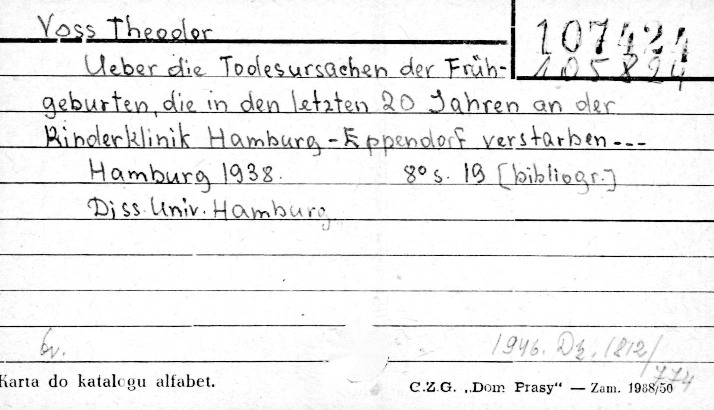 Voss Theodor
107424
105894
Ueber die Todesursachen der Früh-
geburten, die in den letzten 20 Jahren an der
Kinderklinik Hamburg-Eppendorf verstarben---
Hamburg 1938. 8° s. 19 [bibliogr.]
Diss. Univ. Hamburg
br.
1946. Dz. 1812/
774
Karta do katalogu alfabet.
C.Z.G. „Dom Prasy“ — Zam. 1968/50